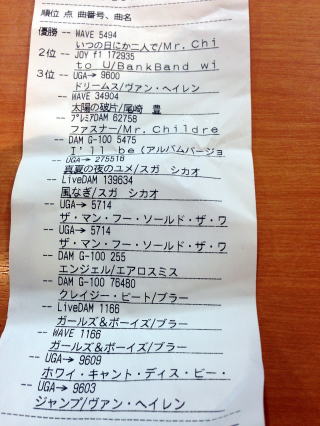 順位 点 曲番号、曲名
優勝 -- WAVE 5494
いつの日にか二人で/Mr. Chi
2位 -- JOY f1 172935
to U/BankBand wi
3位 -- UGA→ 9600
ドリームス/ヴァン・ヘイレン
-- WAVE 34904
太陽の破片/尾崎 豊
-- プレミアDAM 62758
ファスナー/Mr. Childre
-- DAM G-100 5475
I'll be(アルバムバージョ
-- UGA→ 275518
真夏の夜のユメ/スガ シカオ
-- LiveDAM 139634
風なぎ/スガ シカオ
-- UGA→ 5714
ザ・マン・フー・ソールド・ザ・ワ
-- UGA→ 5714
ザ・マン・フー・ソールド・ザ・ワ
-- DAM G-100 255
エンジェル/エアロスミス
-- DAM G-100 76480
クレイジー・ビート/ブラー
-- LiveDAM 1166
ガールズ&ボーイズ/ブラー
-- WAVE 1166
ガールズ&ボーイズ/ブラー
-- UGA→ 9609
ホワイ・キャント・ディス・ビー・
-- UGA→ 9603
ジャンプ/ヴァン・ヘイレン